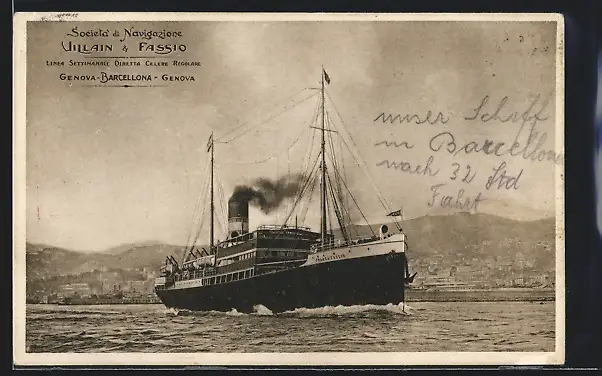 Società di Navigazione
VILLAIN & FASSIO
LINEA SETTIMANALE DIRETTA CELERE REGOLARE
GENOVA-BARCELLONA-GENOVA
unser Schiff
in Barcellona
nach 32 Std
Fahrt